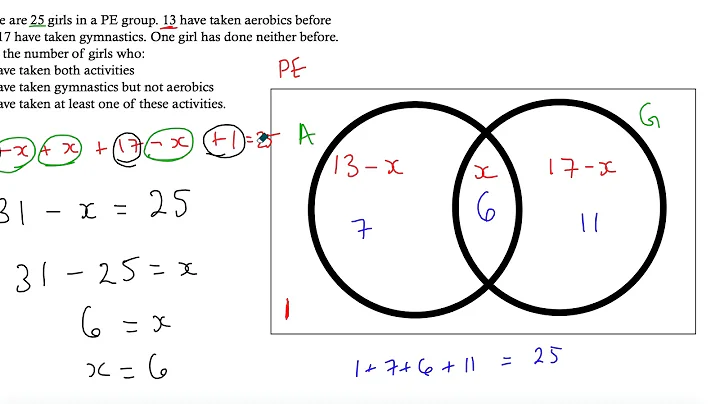 e are 25 girls in a PE group. 13 have taken aerobics before
17 have taken gymnastics. One girl has done neither before.
the number of girls who:
ave taken both activities
ave taken gymnastics but not aerobics
ave taken at least one of these activities.
-x + x + 17 - x + 1 = 25
31 - x = 25
31 - 25 = x
6 = x
x = 6
PE
A
G
13 - x
x
17 - x
7
6
11
1
1 + 7 + 6 + 11 = 25